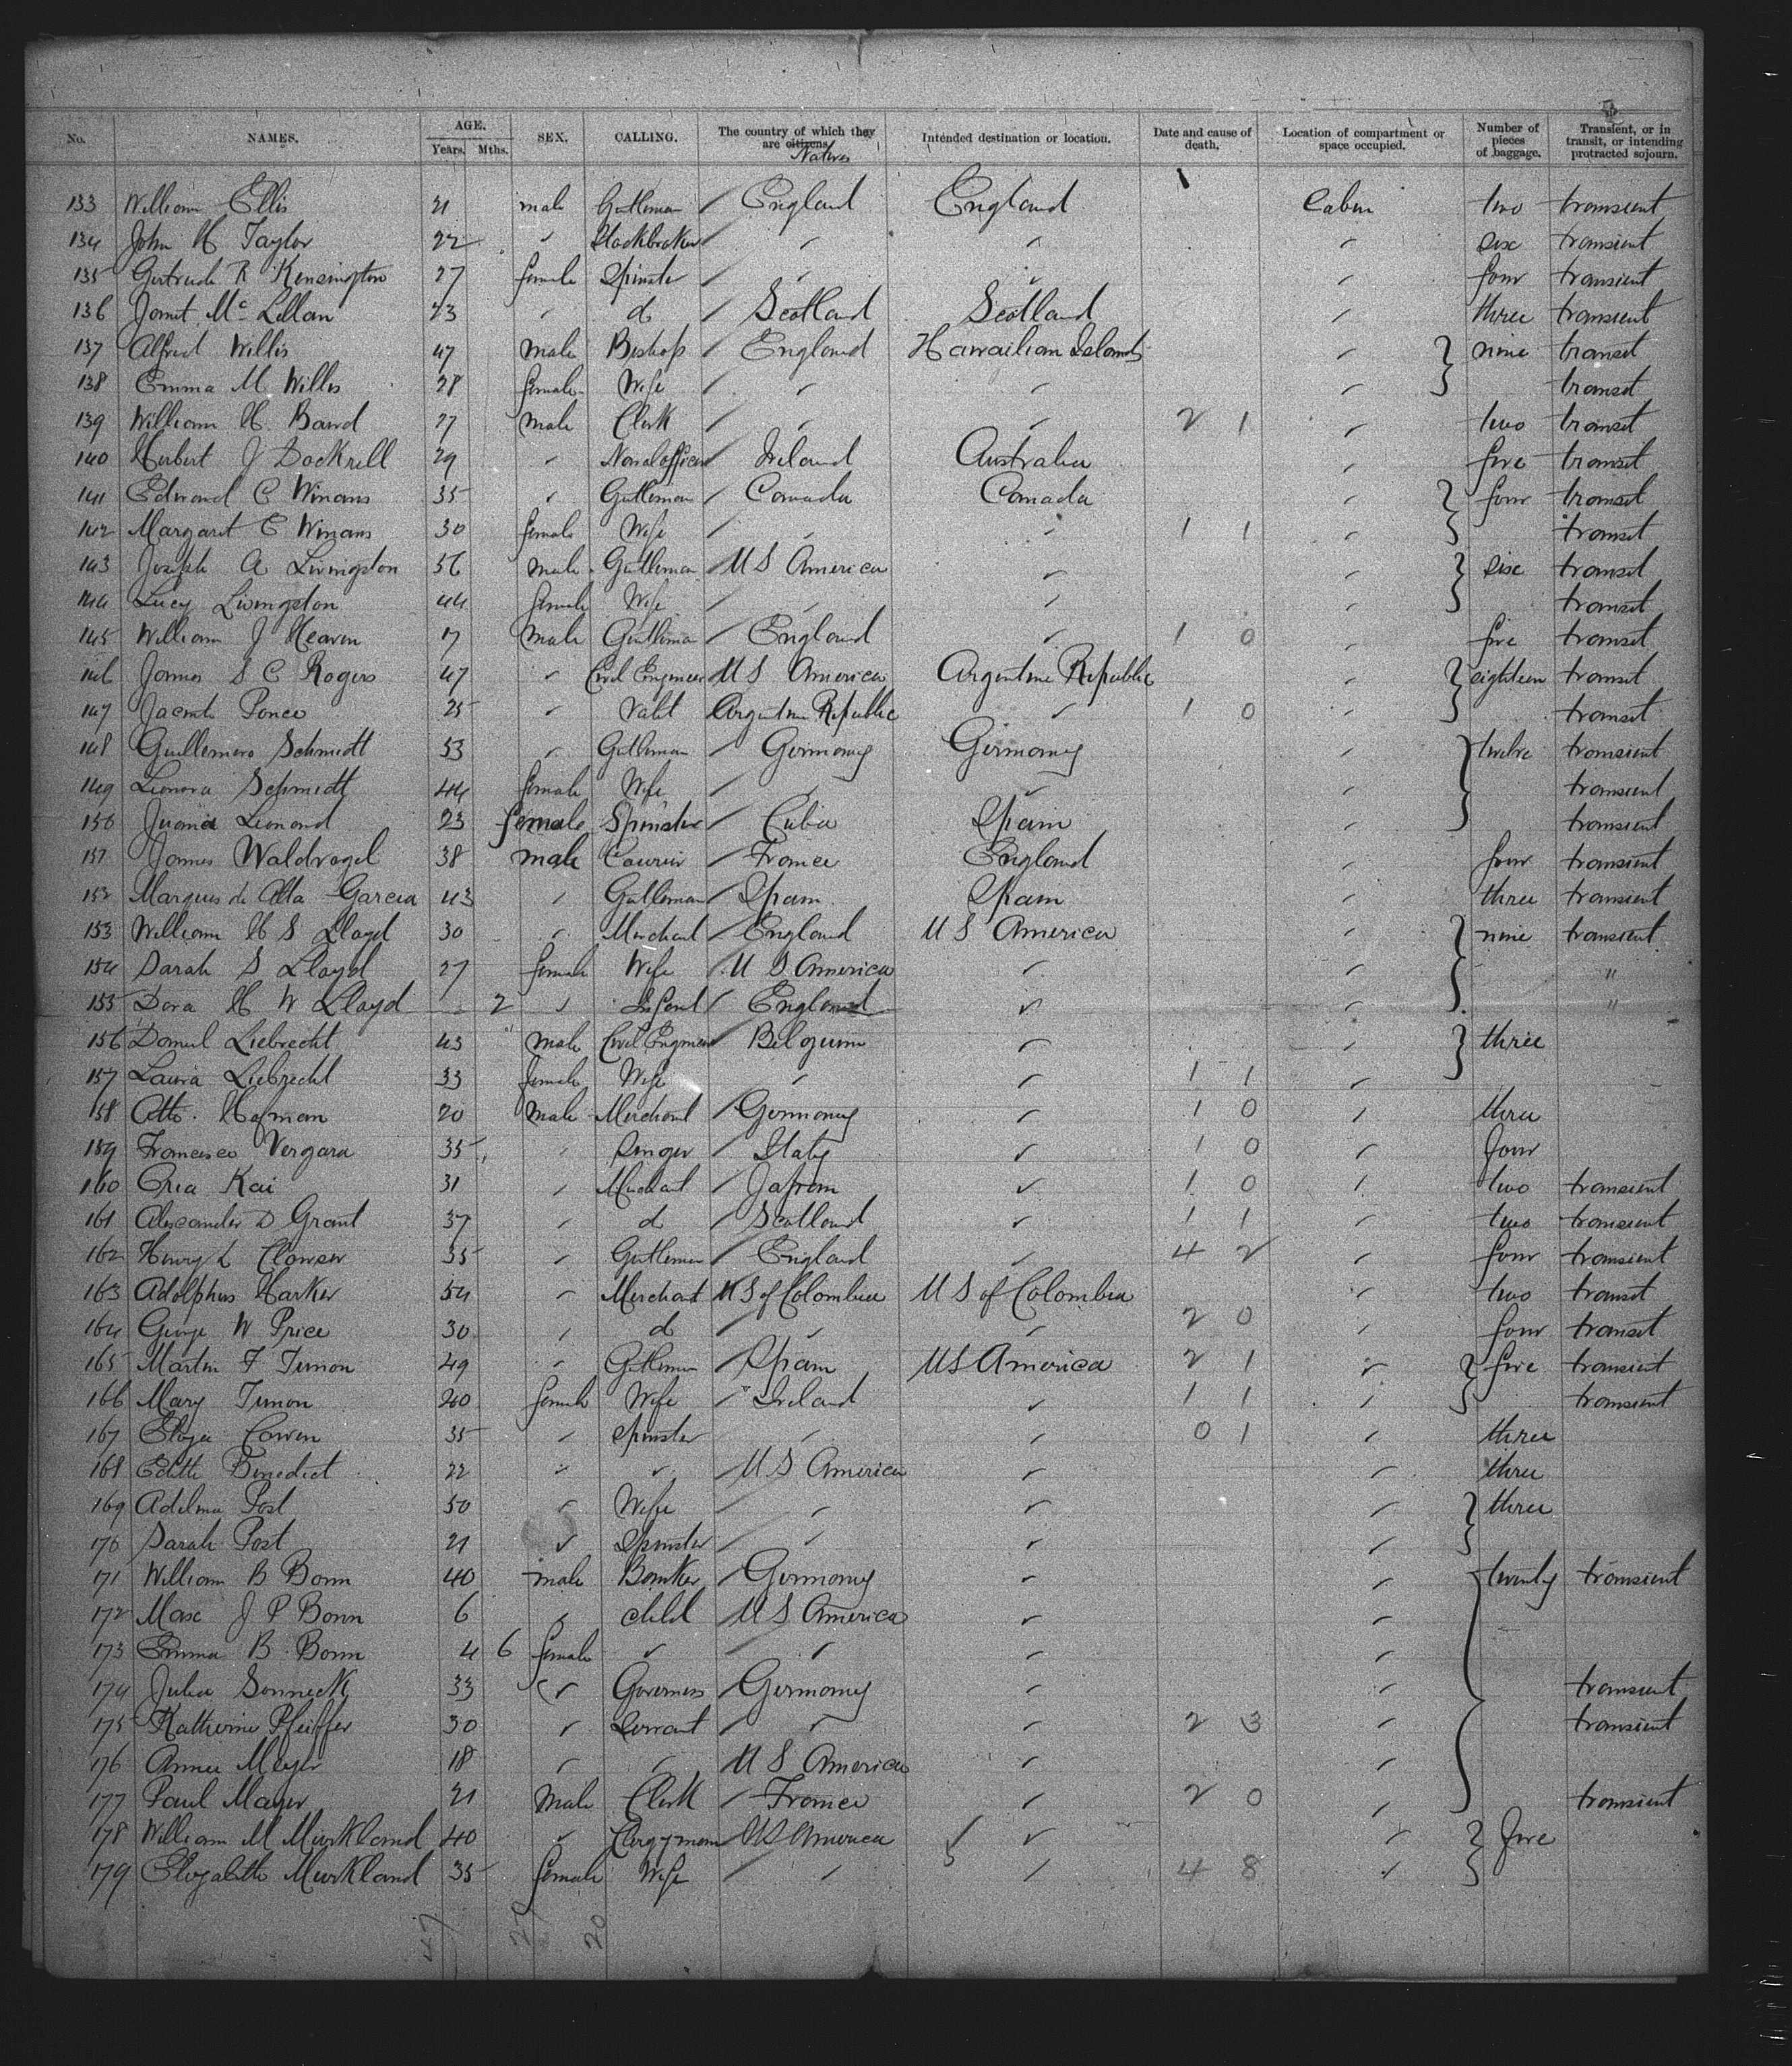 No. NAMES. AGE. Years. Mths. SEX. CALLING. The country of which they are citizens. Natives Intended destination or location. Date and cause of death. Location of compartment or space occupied. Number of pieces of baggage. Transient, or in transit, or intending protracted sojourn.
133 William Ellis 21 male Gentleman / England England Cabin two transient
134 John H Taylor 22 " Stockbroker / " " " six transient
135 Gertrude R Kensington 27 female Spinster / " " " four transient
136 Janet Mc Lellan 23 " do / Scotland Scotland " three transient
137 Alfred Willis 47 male Bishop / England Hawaiian Islands " } nine transit
138 Emma M Willis 28 female Wife / " " " transit
139 William H. Baird 27 male Clerk / " " 2 1 " two transit
140 Herbert J Dockrell 29 " Naval officer / Ireland Australia " five transit
141 Edward C Winans 35 " Gentleman / Canada Canada " } four transit
142 Margaret E Winans 30 female Wife / " " 1 1 " transit
143 Joseph A Livingston 56 male Gentleman / U S America " " } six transit
144 Lucy Livingston 44 female Wife / " " " transit
145 William J Heaven 17 male Gentleman / England " 1 0 " five transit
146 James S C Rogers 47 " Civil Engineer / U S America Argentine Republic " } eighteen transit
147 Jacinto Ponce 25 " Valet Argentine Republic " 1 0 " transit
148 Guillermo Schmidt 53 " Gentleman / Germany Germany " } twelve transient
149 Leonora Schmidt 44 female Wife / " " " transient
150 Juana Leonard 23 female Spinster / Cuba Spain " transient
151 James Waldvogel 38 male Courier / France England " four transient
152 Marques de Alta Garcia 43 " Gentleman / Spain Spain " three transient
153 William H S Lloyd 30 " Merchant / England U S America " } nine transient
154 Sarah S Lloyd 27 female Wife / U S America " " "
155 Dora H W Lloyd - 2 " Infant / England " " "
156 Daniel Liebrecht 43 male Civil Engineer / Belgium " " } three
157 Laura Liebrecht 33 female Wife / " " 1 1 "
158 Otto Hofman 20 male Merchant / Germany " 1 0 " three
159 Francisco Vergara 35 " Singer / Italy " 1 0 " four
160 Kai 31 " Merchant / Japan " 1 0 " two transient
161 Alexander D Grant 37 " do / Scotland " 1 1 " two transient
162 Henry L Clowser 35 " Gentleman / England " 4 2 " four transient
163 Adolphus Harker 54 " Merchant U S of Colombia U S of Colombia " two transit
164 George W Price 30 " do / " " 2 0 " four transit
165 Martin F Timon 49 " Gentleman / Spain U S America 2 1 " } five transient
166 Mary Timon 20 female Wife / Ireland " 1 1 " transient
167 Eliza Cowen 35 " Spinster / " " 0 1 " three
168 Edith Benedict 22 " " / U S America " " three
169 Adelma Post 50 " Wife / " " " } three
170 Sarah Post 21 " Spinster / " " "
171 William B Bonn 40 male Banker / Germany " " } twenty transient
172 Max J P Bonn 6 " child / U S America " "
173 Emma B Bonn 4 6 female " / " " "
174 Julia Sonneck 33 " Governess / Germany " " transient
175 Katherine Pfeiffer 30 " Servant / " " 2 3 " transient
176 Annie Meyer 18 " " / U S America " "
177 Paul Mayer 21 male Clerk / France " 2 0 " transient
178 William M Murkland 40 " Clergyman / U S America " " } five
179 Elizabeth Murkland 35 female Wife / " " 4 8 "
47 27 20